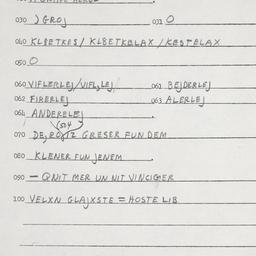 030 ) GROJ 031 O
040 KLBETKES / KLBETKBLAX / KBSTBLAX
050 O
060 VIFLERLEJ / VIFLELEJ 061 BEJDERLEJ
062 FIRERLEJ 063 ALERLEJ
064 ANDERELEJ
070 GRESER FUN DEM
080 KLENER FUN JENEM
090 — QNIT MER UN NIT VINCIGER
100 VELXN GLAJXSTE = HOSTE LIB